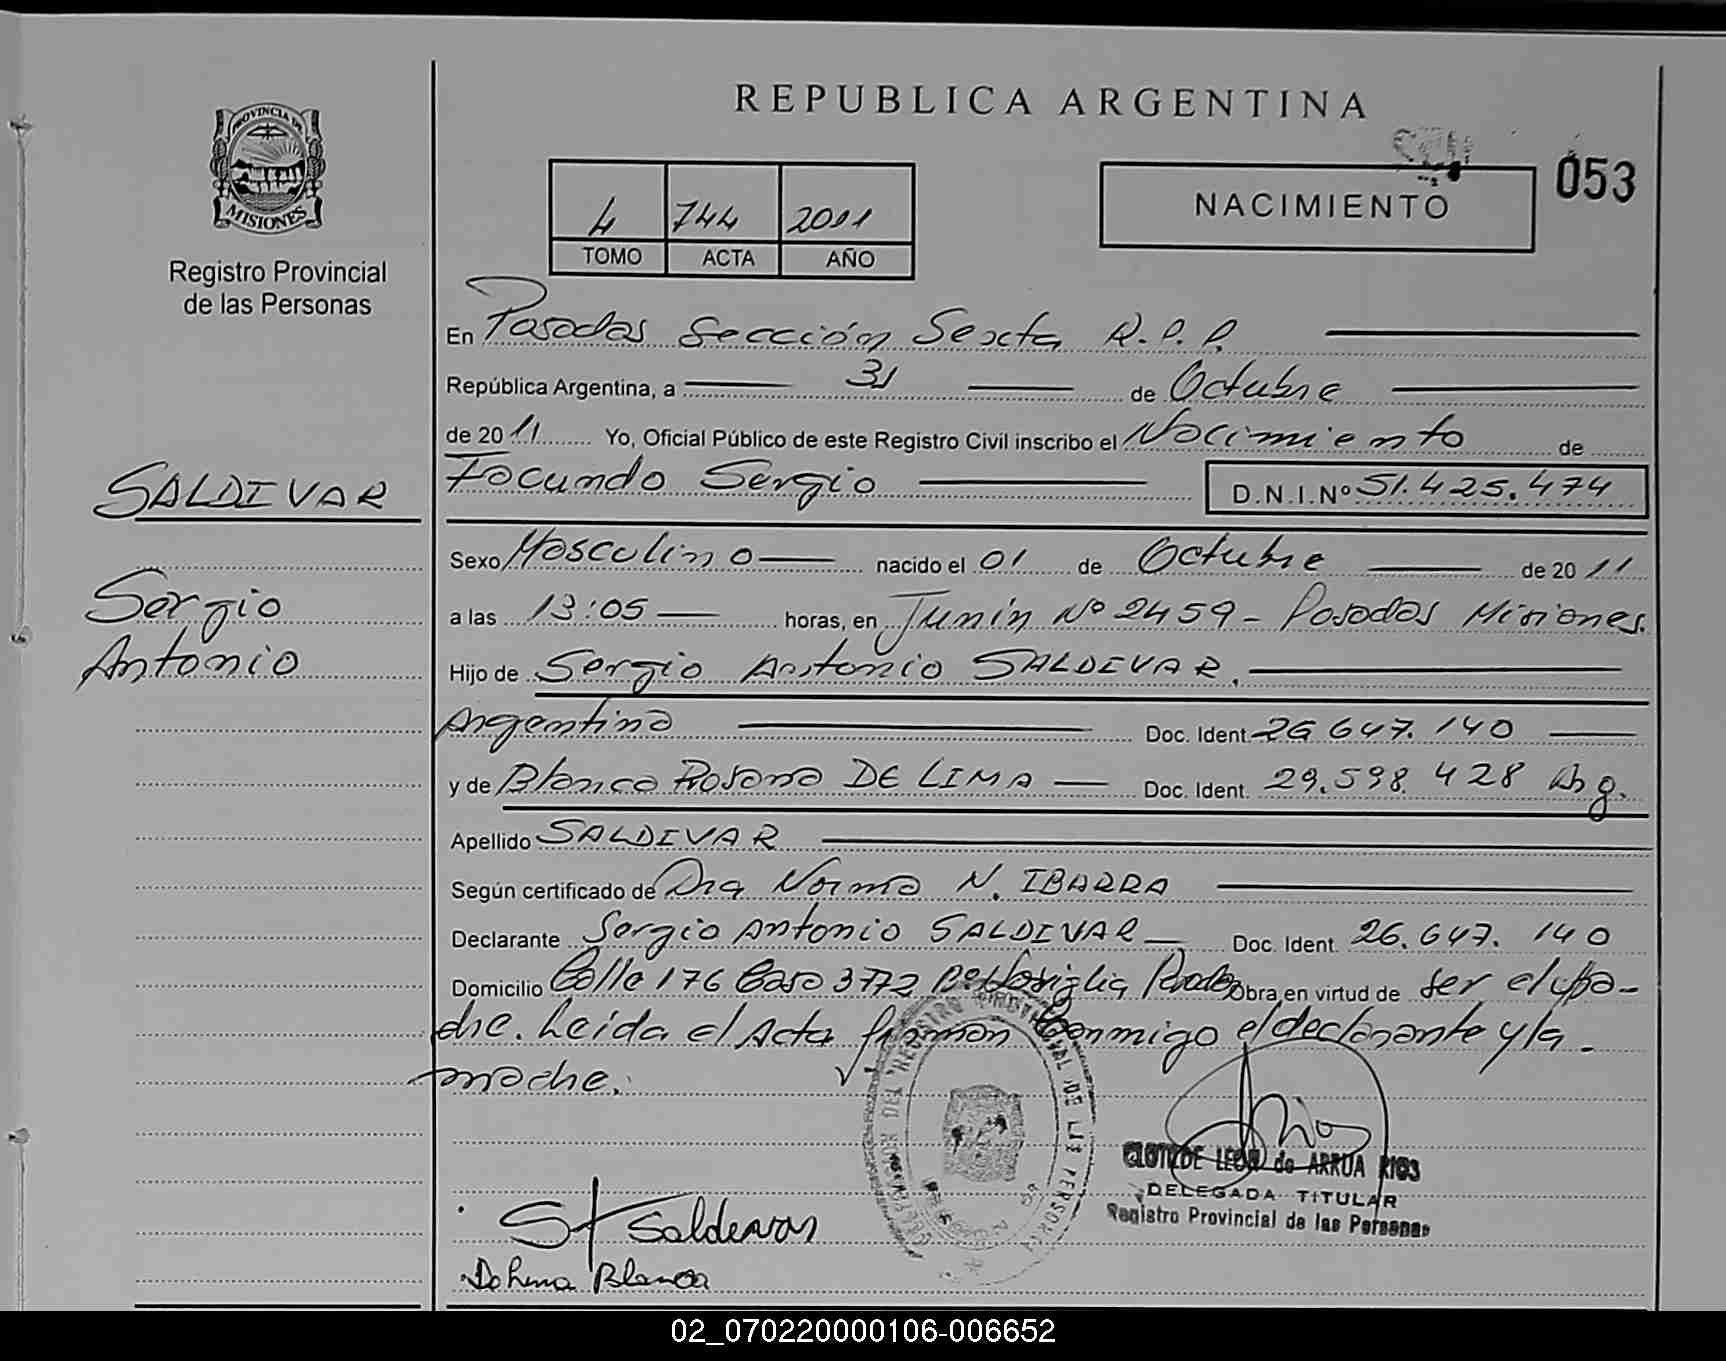 REPUBLICA ARGENTINA
PROVINCIA DE
MISIONES
Registro Provincial
de las Personas
4 744 2011
TOMO ACTA AÑO
NACIMIENTO
053
En Posadas Sección Sexta R.P.P.
República Argentina, a 31 de Octubre
de 2011 Yo, Oficial Público de este Registro Civil inscribo el Nacimiento de
Facundo Sergio D.N.I.Nº 51.425.474
SALDIVAR
Sergio
Antonio
Sexo Masculino nacido el 01 de Octubre de 2011
a las 13:05 horas, en Junín Nº 2459 - Posadas Misiones.
Hijo de Sergio Antonio SALDIVAR.
Argentino Doc. Ident. 26.647.140
y de Blanca Rosana DE LIMA Doc. Ident. 29.598.428 Arg.
Apellido SALDIVAR
Según certificado de Dra Norma N. IBARRA
Declarante Sergio Antonio SALDIVAR Doc. Ident. 26.647.140
Domicilio Calle 176 Casa 3772 Obra en virtud de ser el pa-
dre. Leída el Acta firman conmigo el declarante y la
madre.
CLOTILDE LEON de ARRUA RIOS
DELEGADA TITULAR
Registro Provincial de las Personas
Saldivar
De lima Blanca
02_070220000106-006652